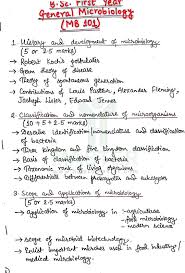 B.Sc. First Year
General Microbiology
(MB 101)
1. History and development of microbiology.
(5 or 2.5 marks)
→ Robert Koch's postulates
→ Germ theory of disease
→ Theory of spontaneous generation
→ Contributions of Louis Pasteur, Alexander Fleming,
Joseph Lister, Edward Jenner
2. Classification and nomenclature of microorganisms
(10 + 5 + 2.5 marks)
→ Describe identification/nomenclature and classification
of bacteria
→ Three kingdom and five kingdom classification
→ Basis of classification of bacteria
→ Taxonomic rank of living organisms
→ Differentiate between prokaryotes and eukaryotes
3. Scope and applications of microbiology.
(5 or 2.5 marks)
→ application of microbiology in :- agriculture
- food microbiology
- modern science
→ scope of microbial biotechnology.
→ Enlist important microbes used in food industry/
medical microbiology.